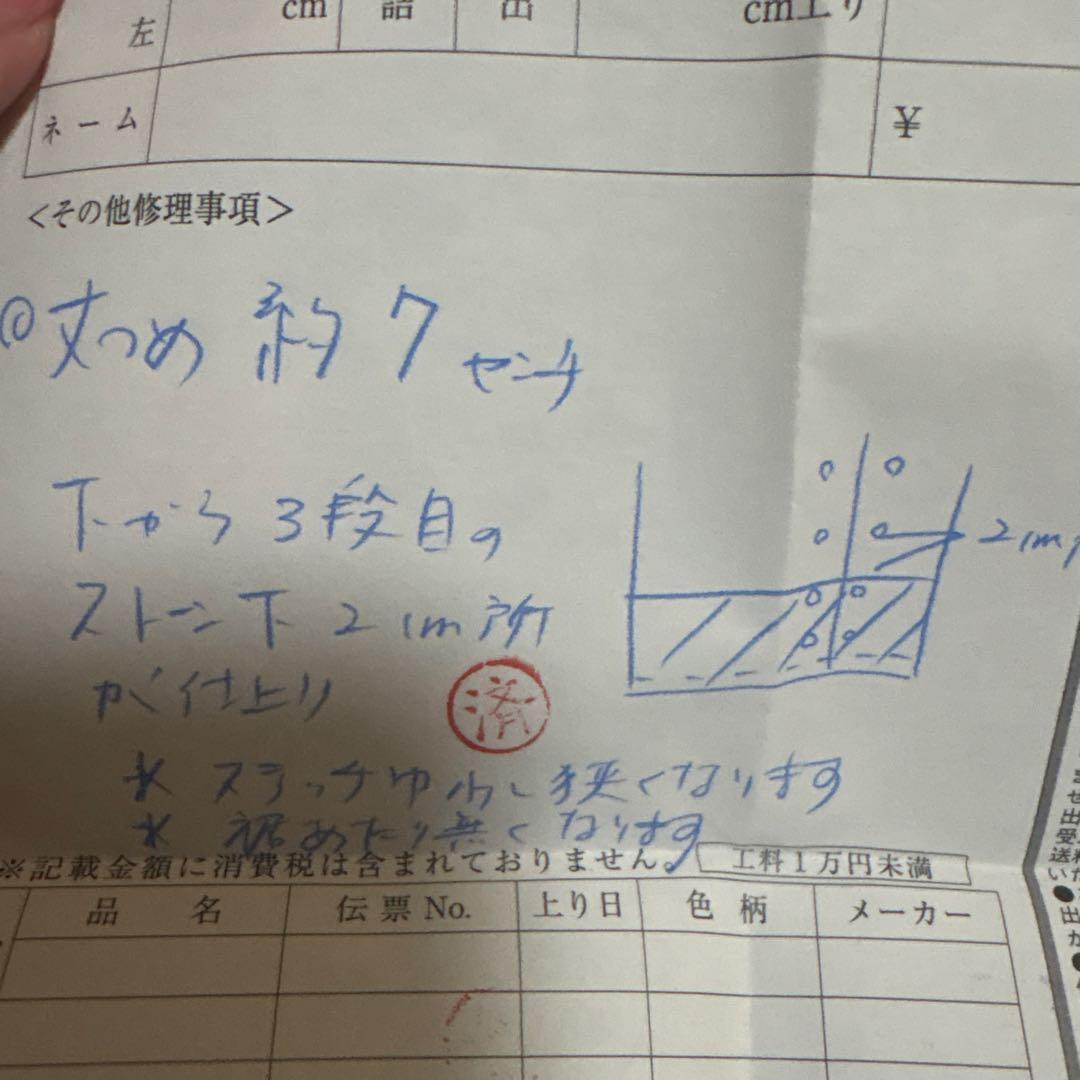 左 cm 詰 出 cm上り
ネーム ¥
<その他修理事項>
◎丈つめ 約7センチ
下から3段目の
ストーン下2cm所
が仕上り
済
2cm
* ステッチ巾少し狭くなります
* 裾あたり無くなります
※記載金額に消費税は含まれておりません。 工料1万円未満
品名 伝票No. 上り日 色柄 メーカー